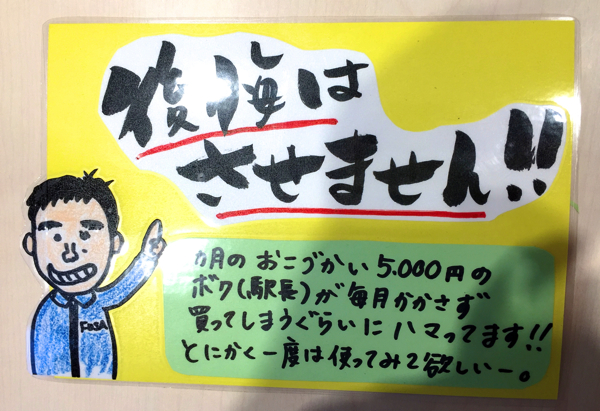 復悔は
させません!!
カ月の おこづかい 5.000円の
ボク(駅長)が毎月かかさず
買ってしまうぐらいに ハマってます!!
とにかく一度は使ってみて欲しいー。